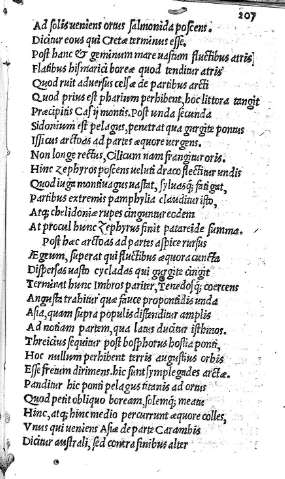 207
Ad solis veniens ortus salmonida poscens.
Dicitur eous qui Cretæ terminus esse.
Post hanc & geminum mare vastum fluctibus atris
Flatibus hismarici boreæ quod tenditur atris
Quod ruit adversus celsæ de partibus arcti
Quod prius est pharium perhibent, hoc littora tangit
Præcipitis Casij montis. Post unda secunda
Sidonium est pelagus, penetrat qua gurgite pontus
Issicus arctoas ad partes æquore vergens.
Non longe rectus, Cilicum nam frangitur oris.
Hinc Zephyros poscens veluti draco flectitur undis
Quod iuga montivagus vastat, sylvasq; fatigat,
Partibus extremis pamphylia clauditur isto,
Atq; chelidoniæ rupes cinguntur eodem
At procul hunc Zephyrus finit patareide summa.
Post hæc arctoas ad partes aspice rursus
Ægeum, superat qui fluctibus æquora cuncta
Dispersas vasto cycladas qui gurgite cingit
Terminat hunc Imbros pariter, Tenedosq; coercens
Angusta trahitur qua fauce propontidis unda
Asia, quam supra populis distenditur amplis
Ad notiam partem, qua latus ducitur isthmos.
Threicius sequitur post bosphorus hostia ponti,
Hoc nullum perhibent terris augustius orbis
Esse fretum dirimens. hic sunt symplegades arctæ.
Panditur hic ponti pelagus titanis ad ortus
Quod petit obliquo boream, solemq; meatu
Hinc, atq; hinc medio percurrunt æquore colles,
Vnus qui veniens Asiæ de parte Carambis
Dicitur australi, sed contra finibus alter